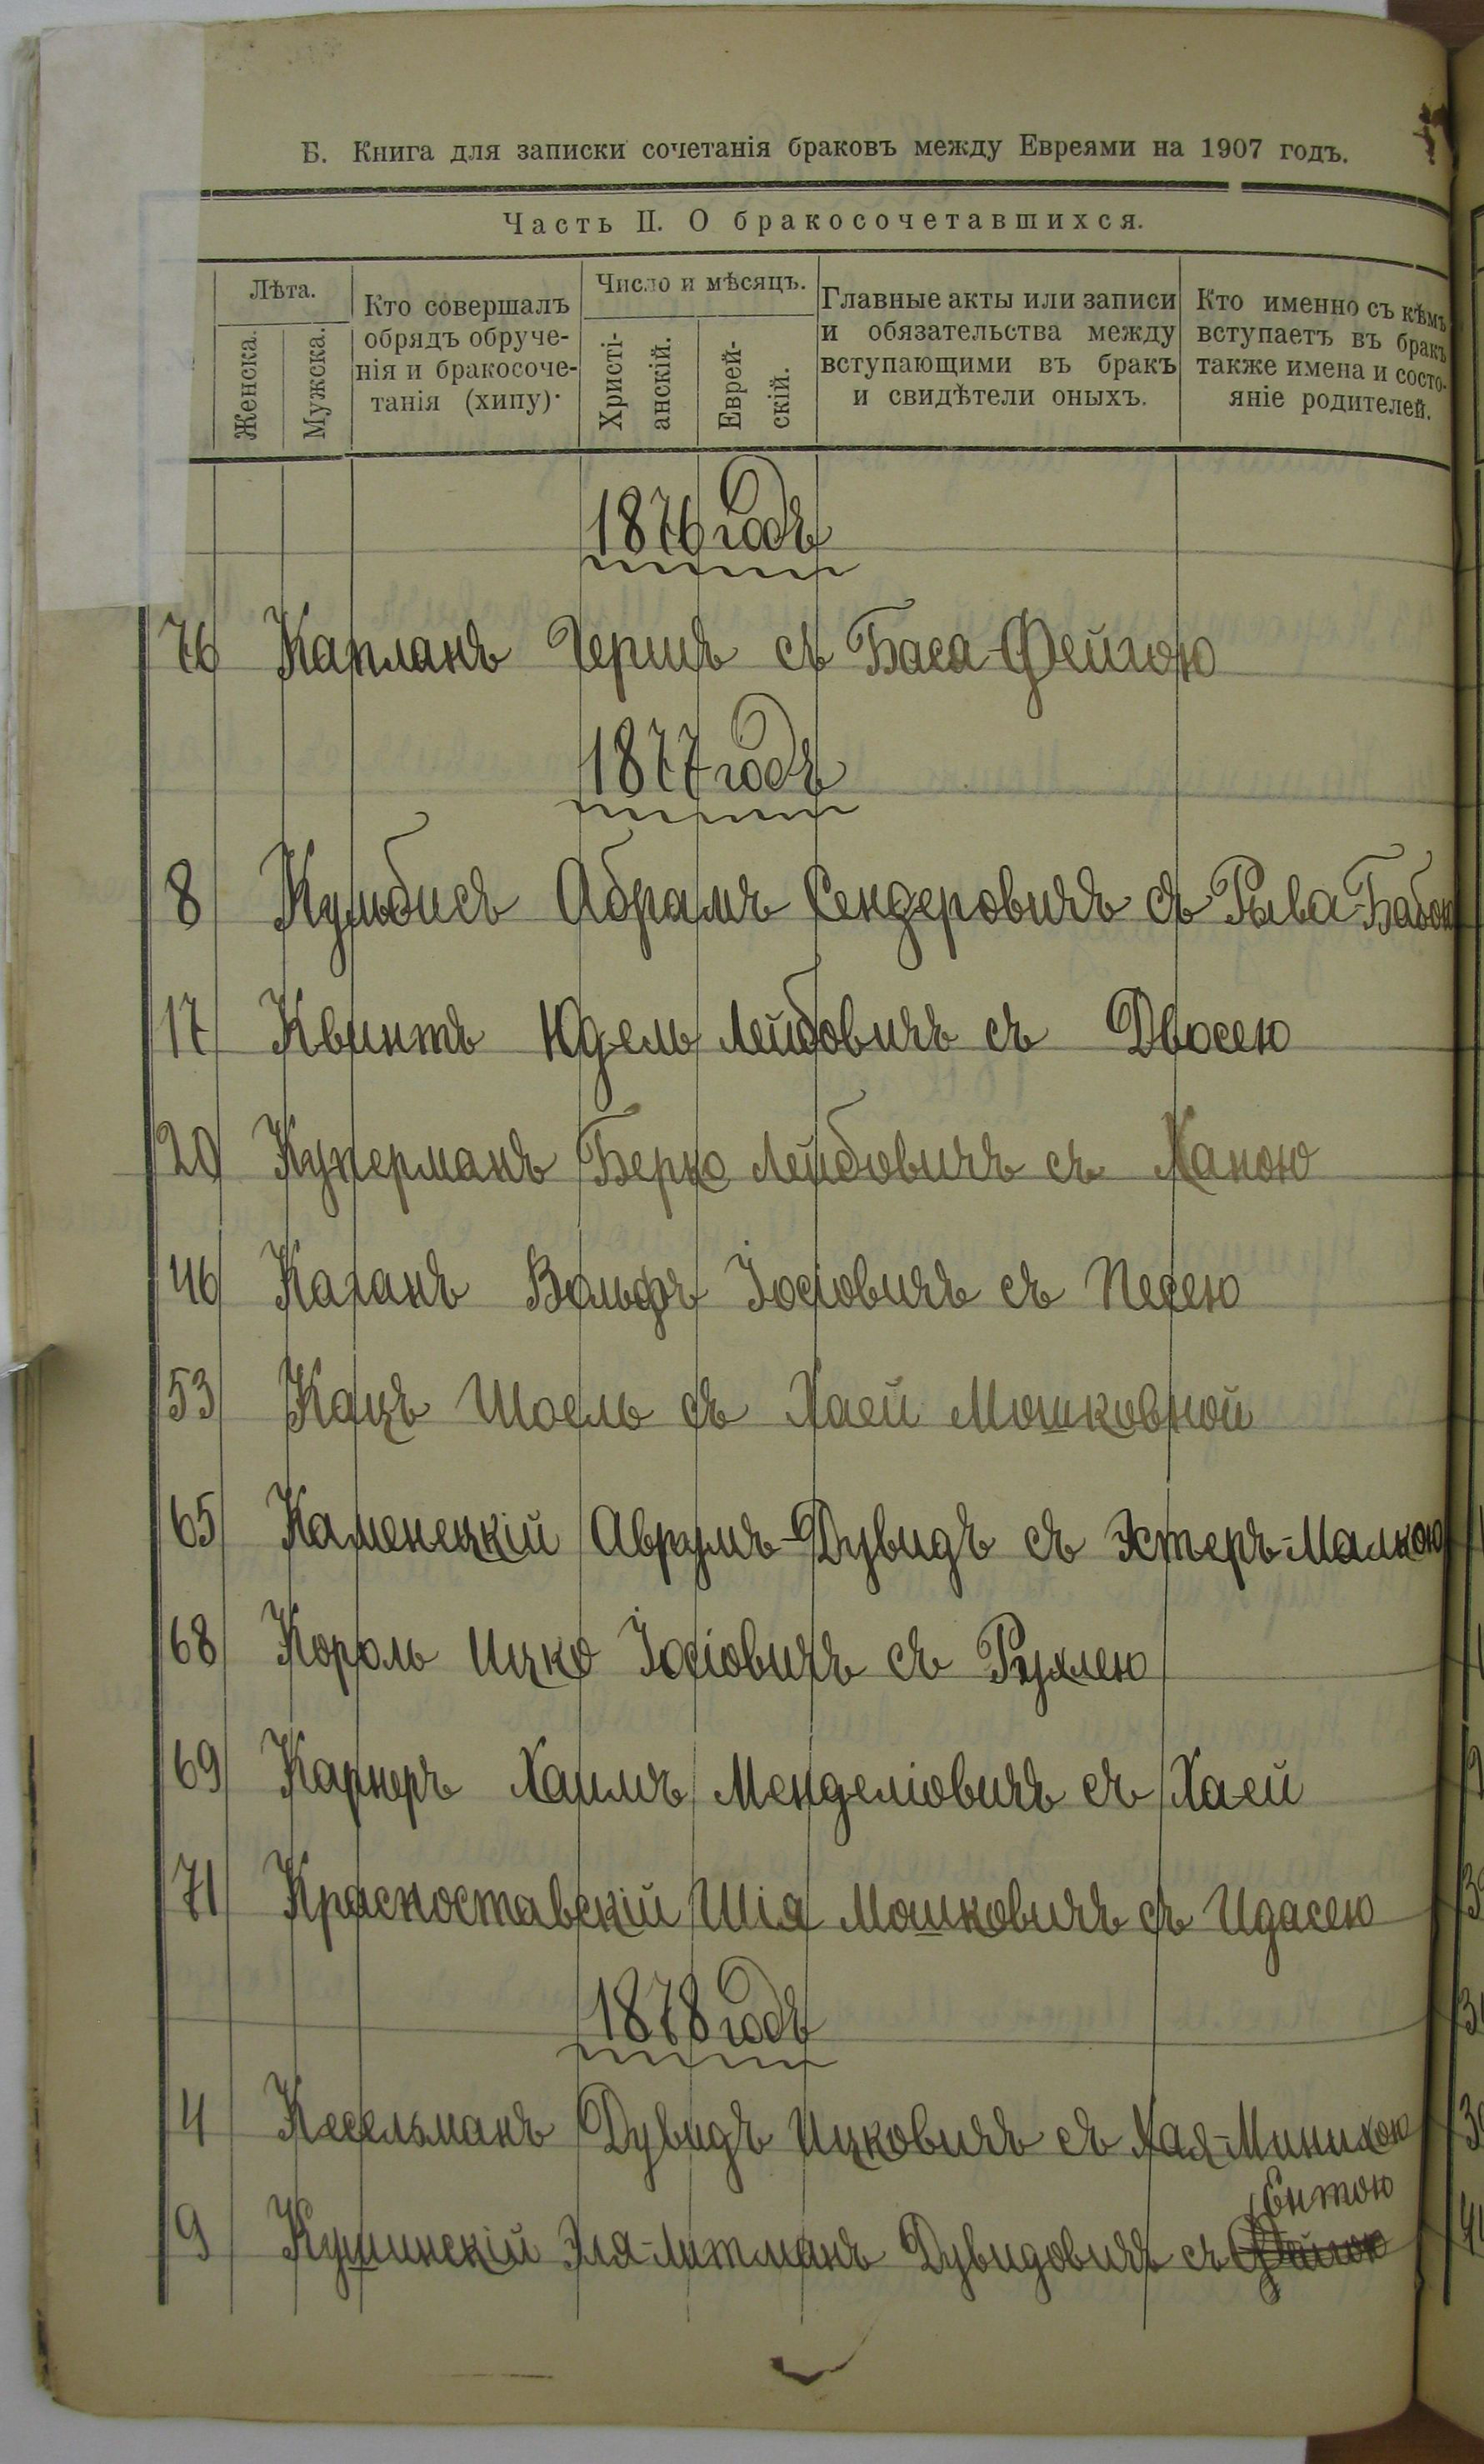 Б. Книга для записки сочетанія браковъ между Евреями на 1907 годъ.
Часть II. О бракосочетавшихся.
Лѣта.
Женска.
Мужска.
Кто совершалъ
обрядъ обруче-
нія и бракосоче-
танія (хипу).
Число и мѣсяцъ.
Христі-
анскій.
Еврей-
скій.
Главные акты или записи
и обязательства между
вступающими въ бракъ
и свидѣтели оныхъ.
Кто именно съ кѣмъ
вступаетъ въ бракъ
также имена и состо-
яніе родителей.
1876 годъ
76 Капланъ Гершъ съ Баса-Фейгою
1877 годъ
8 Кульбисъ Абрамъ Сендеровичъ съ Рыва-Бабою
17 Квинтъ Юдель Лейбовичъ съ Двосею
20 Куперманъ Берко Лейбовичъ съ Ханою
46 Каганъ Вольфъ Іосіовичъ съ Песею
53 Кацъ Шоель съ Хаей Мошковной
65 Каменецкій Аврумъ-Дувидъ съ Эстеръ-Малкою
68 Король Ицко Іосіовичъ съ Рухлею
69 Карнеръ Хаимъ Менделіовичъ съ Хаей
71 Красноставскій Шія Мошковичъ съ Идасею
1878 годъ
4 Кесельманъ Дувидъ Ицковичъ съ Хая-Минихою
Ентою
9 Кушинскій Эля-Литманъ Дувидовичъ съ Фейгою